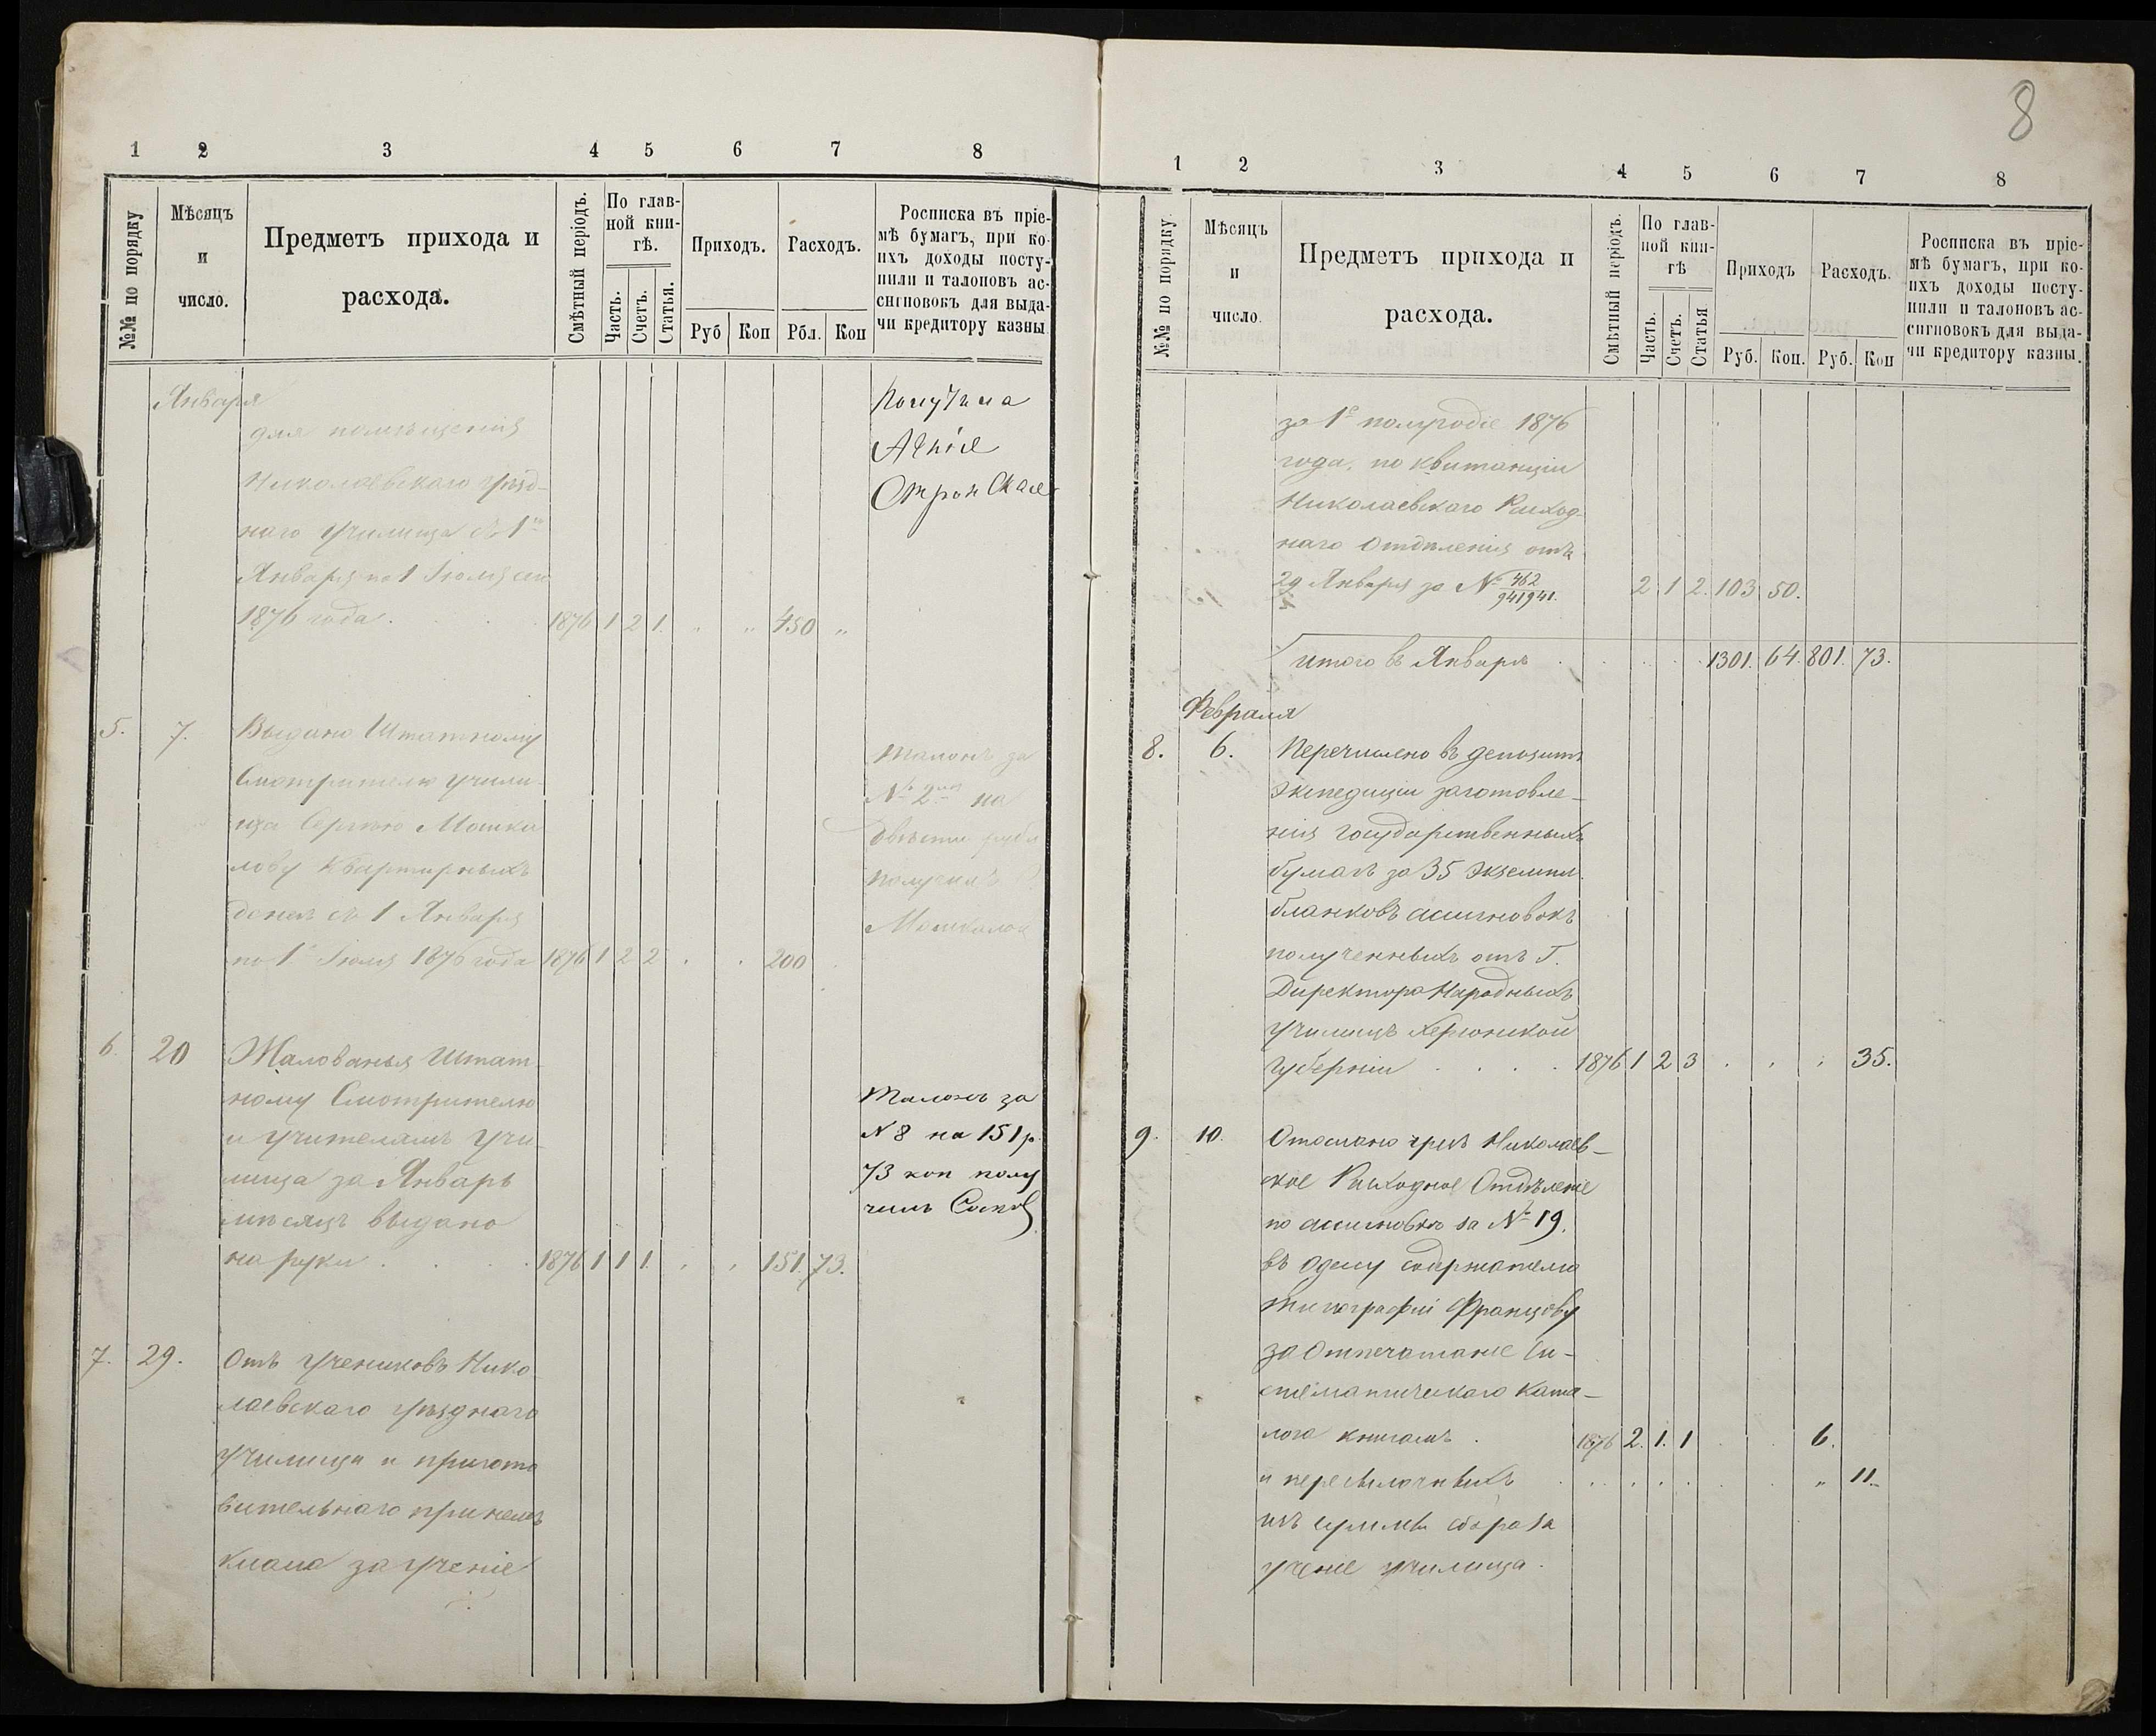 8
1 2 3 4 5 6 7 8
№№ по порядку
Мѣсяцъ и число.
Предметъ прихода и расхода.
Смѣтный періодъ.
По глав-
ной кни-
гѣ.
Часть. Счетъ. Статья.
Приходъ.
Руб Коп
Расходъ.
Рбл. Коп
Росписка въ пріе-
мѣ бумагъ, при ко-
ихъ доходы посту-
пили и талоновъ ас-
сигновокъ для выда-
чи кредитору казны.
Января
для помѣщенія
Николаевскаго уѣзд-
наго Училища съ 1го
Января по 1 Іюля сего
1876 года. 1876 1 2 1. „ „ 450 „
Получила
5. 7. Выдано Штатному
Смотрителю Учили-
ща Сергѣю Мошка
лову Квартирныхъ
денегъ съ 1 Января
по 1е Іюля 1876 года 1876 1 2 2 200
Талонъ за
№ 2 на
двѣсти рубл
получилъ
6. 20 Жалованья Штат-
ному Смотрителю
и учителямъ Учи-
лища за Январь
мѣсяцъ выдано
на руки 1876 1 1 1. 151. 73.
Талонъ за
№ 8 на 151 р.
73 коп полу
чилъ
7. 29. Отъ учениковъ Нико-
лаевскаго уѣзднаго
Училища и пригото
вительнаго при немъ
класса за ученіе
1 2 3 4 5 6 7 8
№№ по порядку
Мѣсяцъ и число.
Предметъ прихода и расхода.
Смѣтный періодъ.
По глав-
ной кни-
гѣ
Часть. Счетъ. Статья
Приходъ
Руб. Коп.
Расходъ.
Руб. Коп
Росписка въ пріе-
мѣ бумагъ, при ко-
ихъ доходы посту-
пили и талоновъ ас-
сигновокъ для выда-
чи кредитору казны.
за 1е полугодіе 1876
года, по квитанціи
Николаевскаго Расход-
наго Отдѣленія отъ
29 Января за № 462/941941. 2 1 2. 103 50.
Итого въ Январѣ 1301. 64. 801. 73.
Февраля
8. 6. Перечислено въ депозитъ
Экспедиціи заготовле-
нія Государственныхъ
бумагъ за 35 экземпл.
бланковъ ассигновокъ
полученныхъ отъ Г.
Директора Народныхъ
Училищъ Херсонской
Губерніи 1876 1 2 3 35.
9. 10. Отослано чрезъ Николаев-
ское Расходное Отдѣленіе
по ассигновкѣ за № 19.
въ Одессу содержателю
типографіи Францову
за Отпечатаніе Си-
стематическаго Ката-
лога книгамъ. 1876 2. 1. 1 6.
и пересылочныхъ „ 11.
изъ суммы сбора за
ученіе училища.